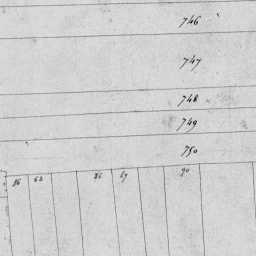 746
747
748
749
750
86 62 86 67 90